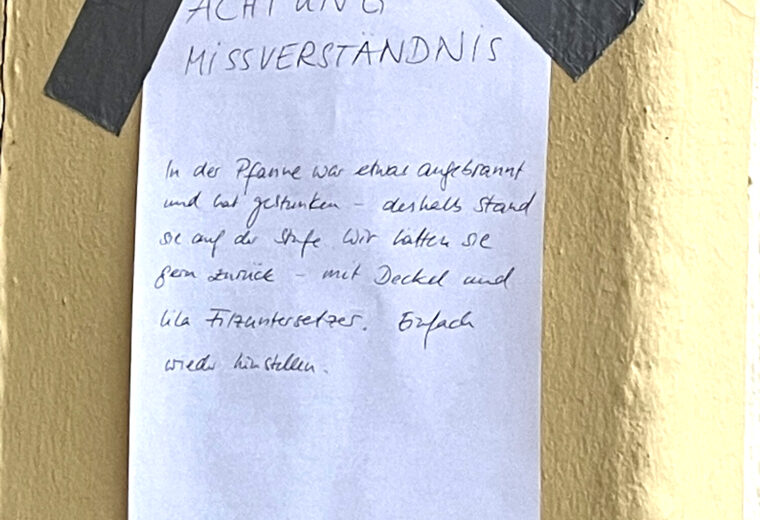 ACHTUNG
MISSVERSTÄNDNIS
In der Pfanne war etwas angebrannt
und hat gestunken – deshalb stand
sie auf der Stufe. Wir hätten sie
gern zurück – mit Deckel und
lila Filzuntersetzer. Einfach
wieder hinstellen.